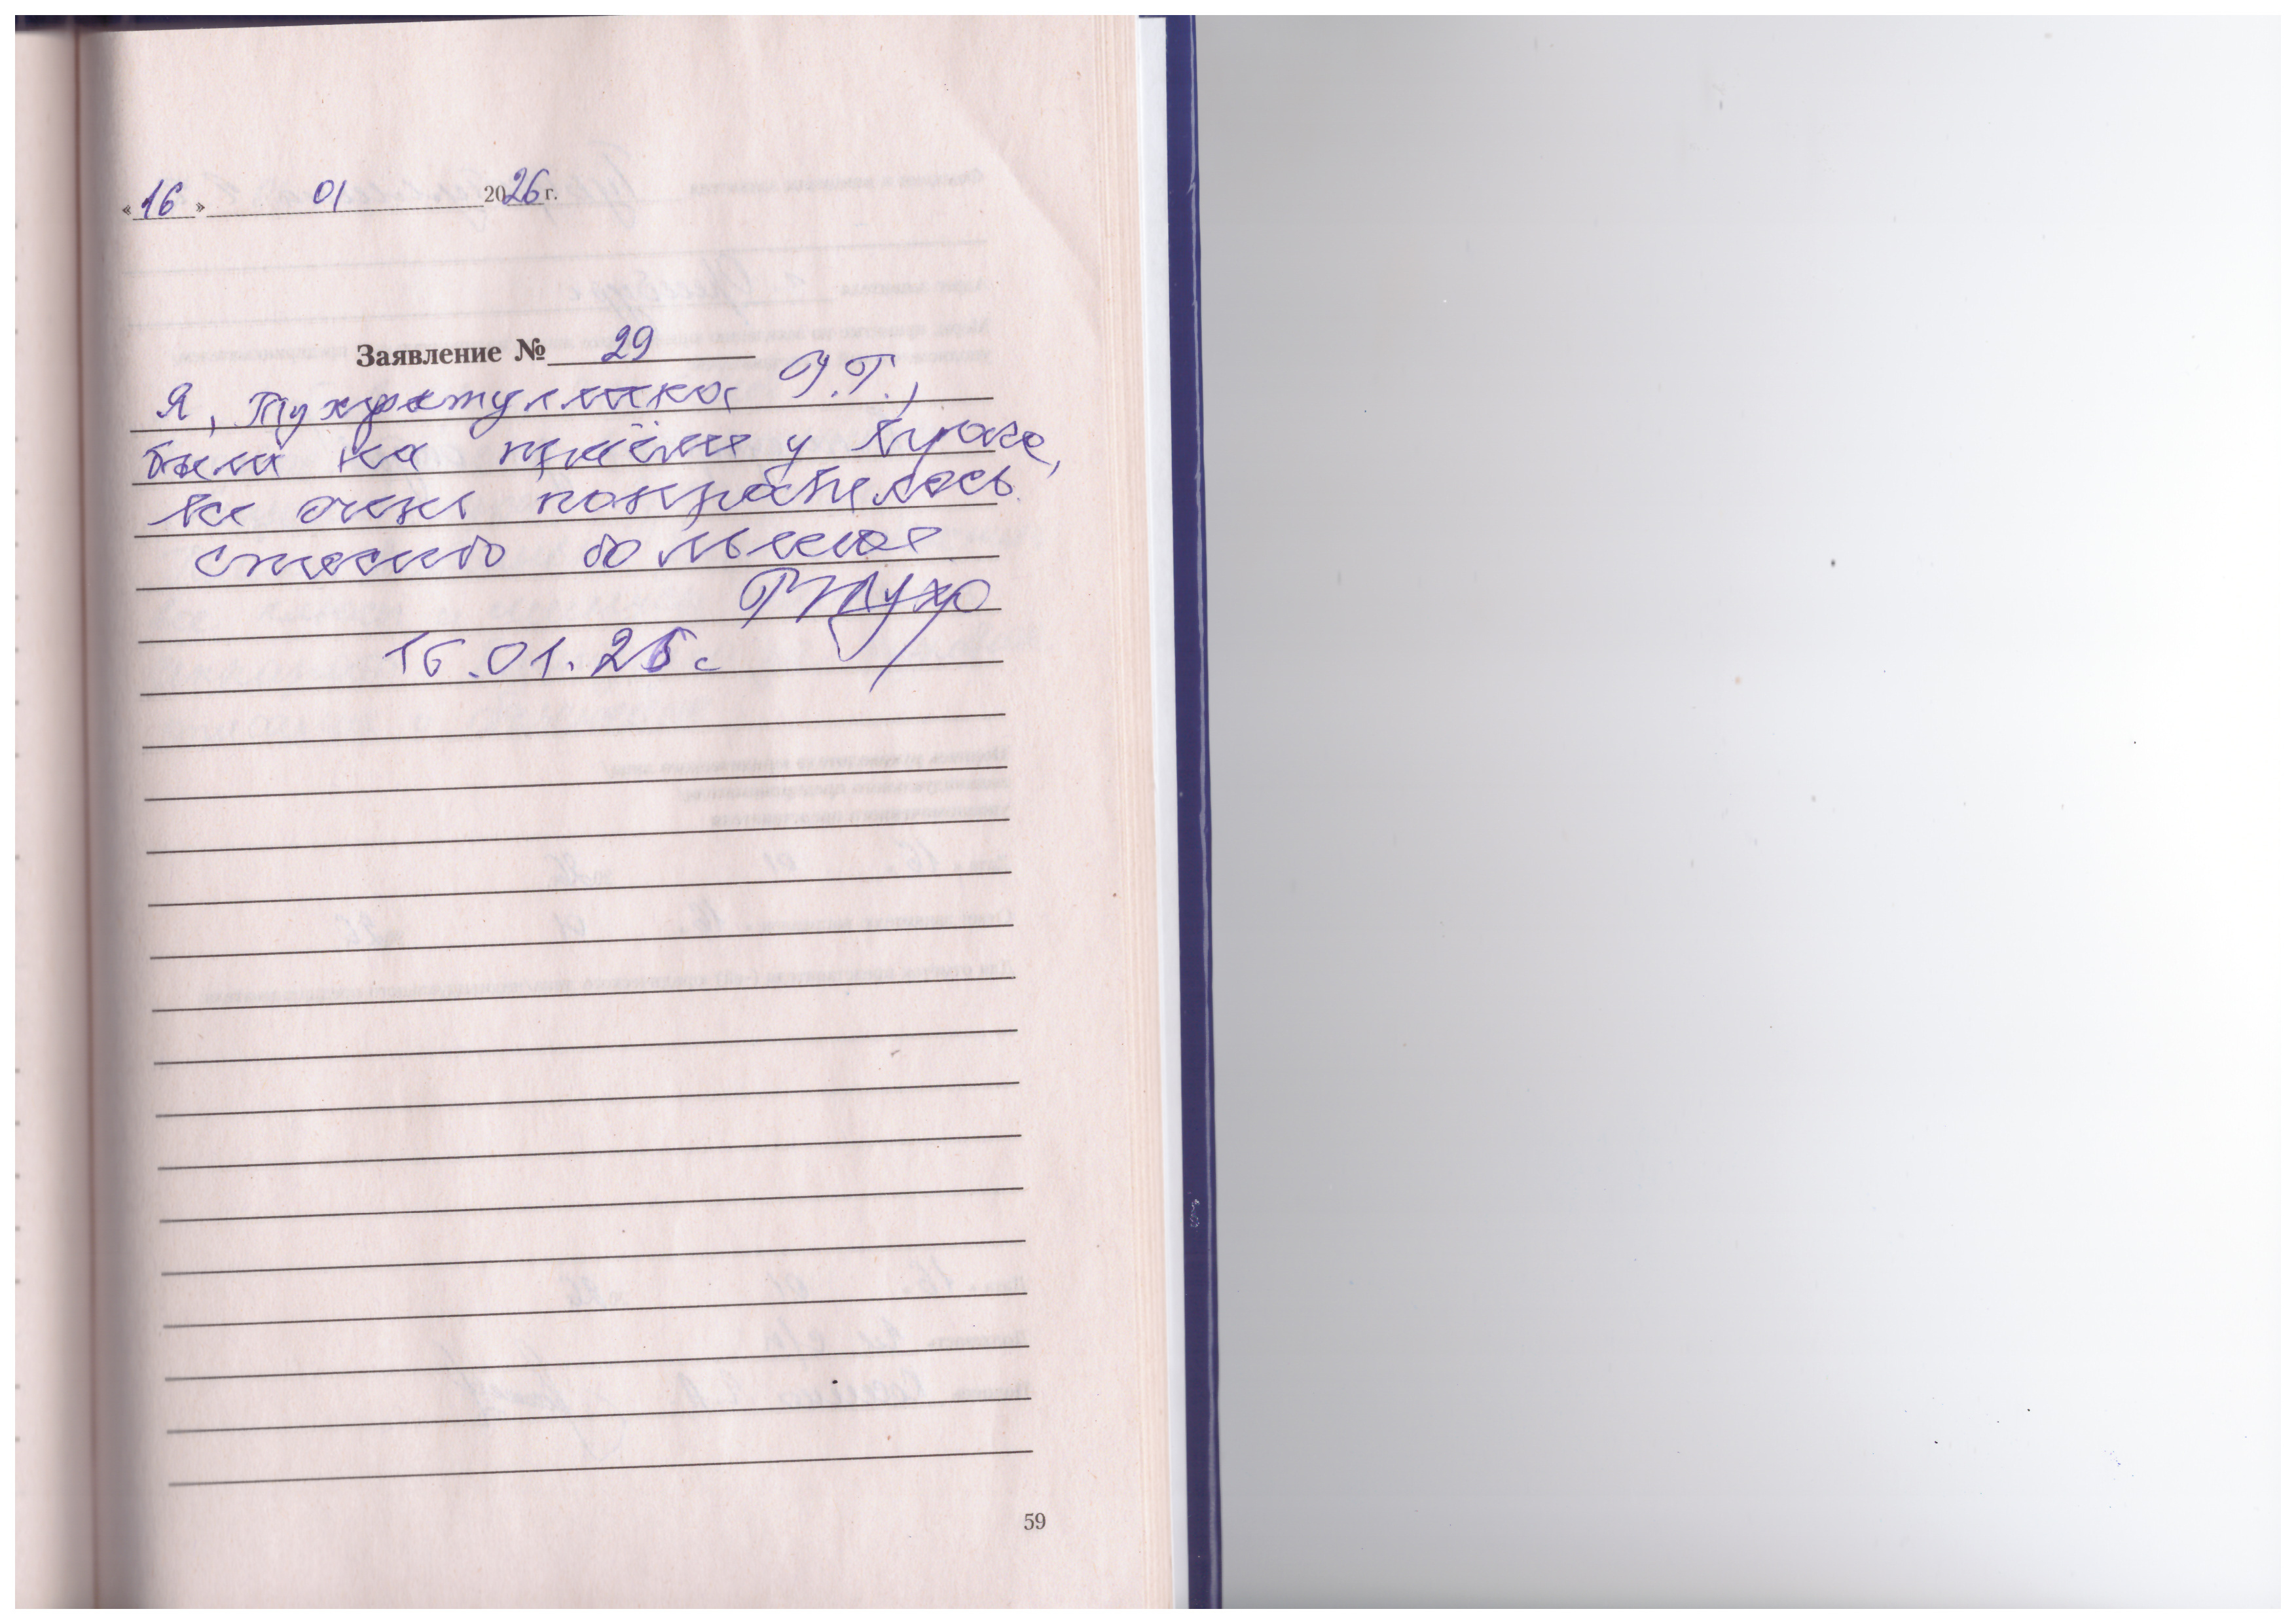 «16» 01 2026 г.
Заявление № 29
Я, Г.Т.,
была на приёме у врача,
все очень понравилось.
спасибо большое
16.01.26 г
59